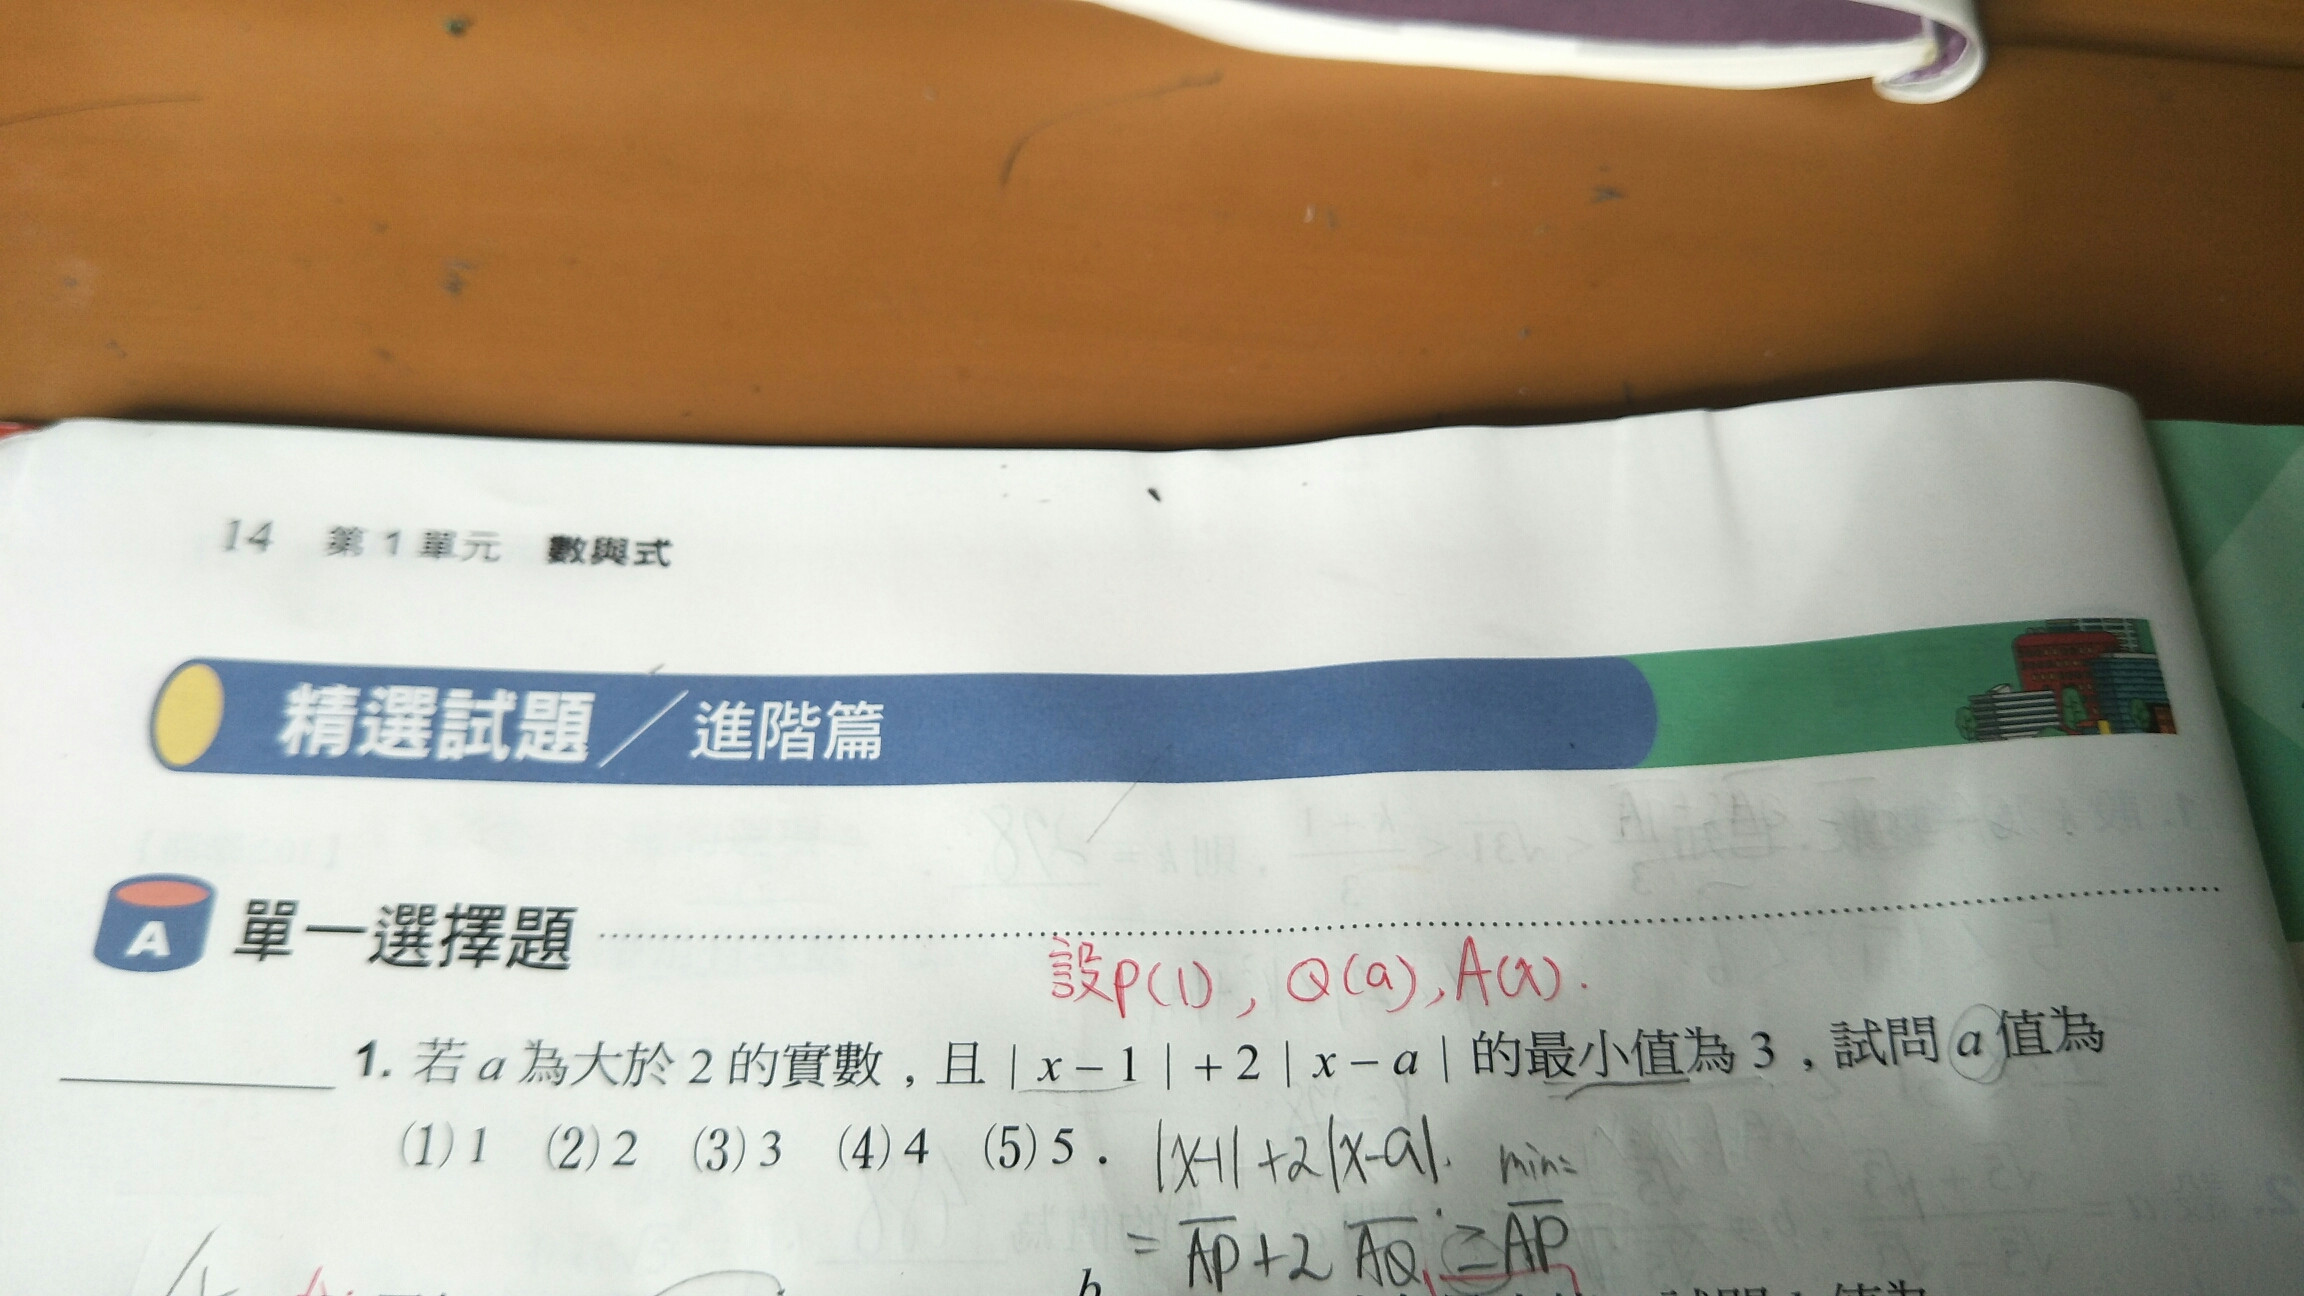 14 第1單元 數與式
精選試題/進階篇
A 單一選擇題
設P(1), Q(a), A(x).
1. 若 a 為大於 2 的實數，且 | x − 1 | + 2 | x − a | 的最小值為 3，試問 a 值為
(1) 1 (2) 2 (3) 3 (4) 4 (5) 5．
|x-1|+2|x-a|. min=
= AP+2 AQ ≥ AP